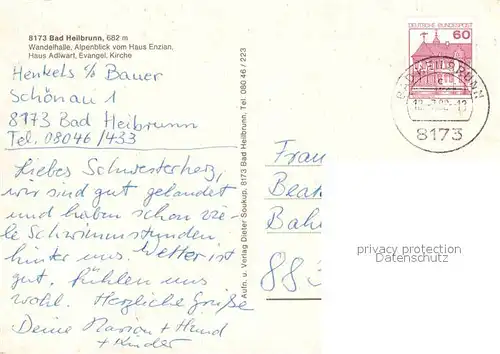 8173 Bad Heilbrunn, 682 m
Wandelhalle, Alpenblick vom Haus Enzian,
Haus Adlwart, Evangel. Kirche
Henkels c/o Bauer
Schönau 1
8173 Bad Heilbrunn
Tel. 08046/433
Liebes Schwesterherz,
wir sind gut gelandet
und haben schon vie-
le Schwimmstunden
hinter uns. Wetter ist
gut, fühlen uns
wohl. Herzliche Grüße
Deine Marion + Hund
+ Kinder
Aufn. u. Verlag Dieter Soukup, 8173 Bad Heilbrunn, Tel. 080 46 / 223
DEUTSCHE BUNDESPOST
60
BAD HEILBRUNN
8173
Frau
Beat
Bah
883
privacy protection
Datenschutz